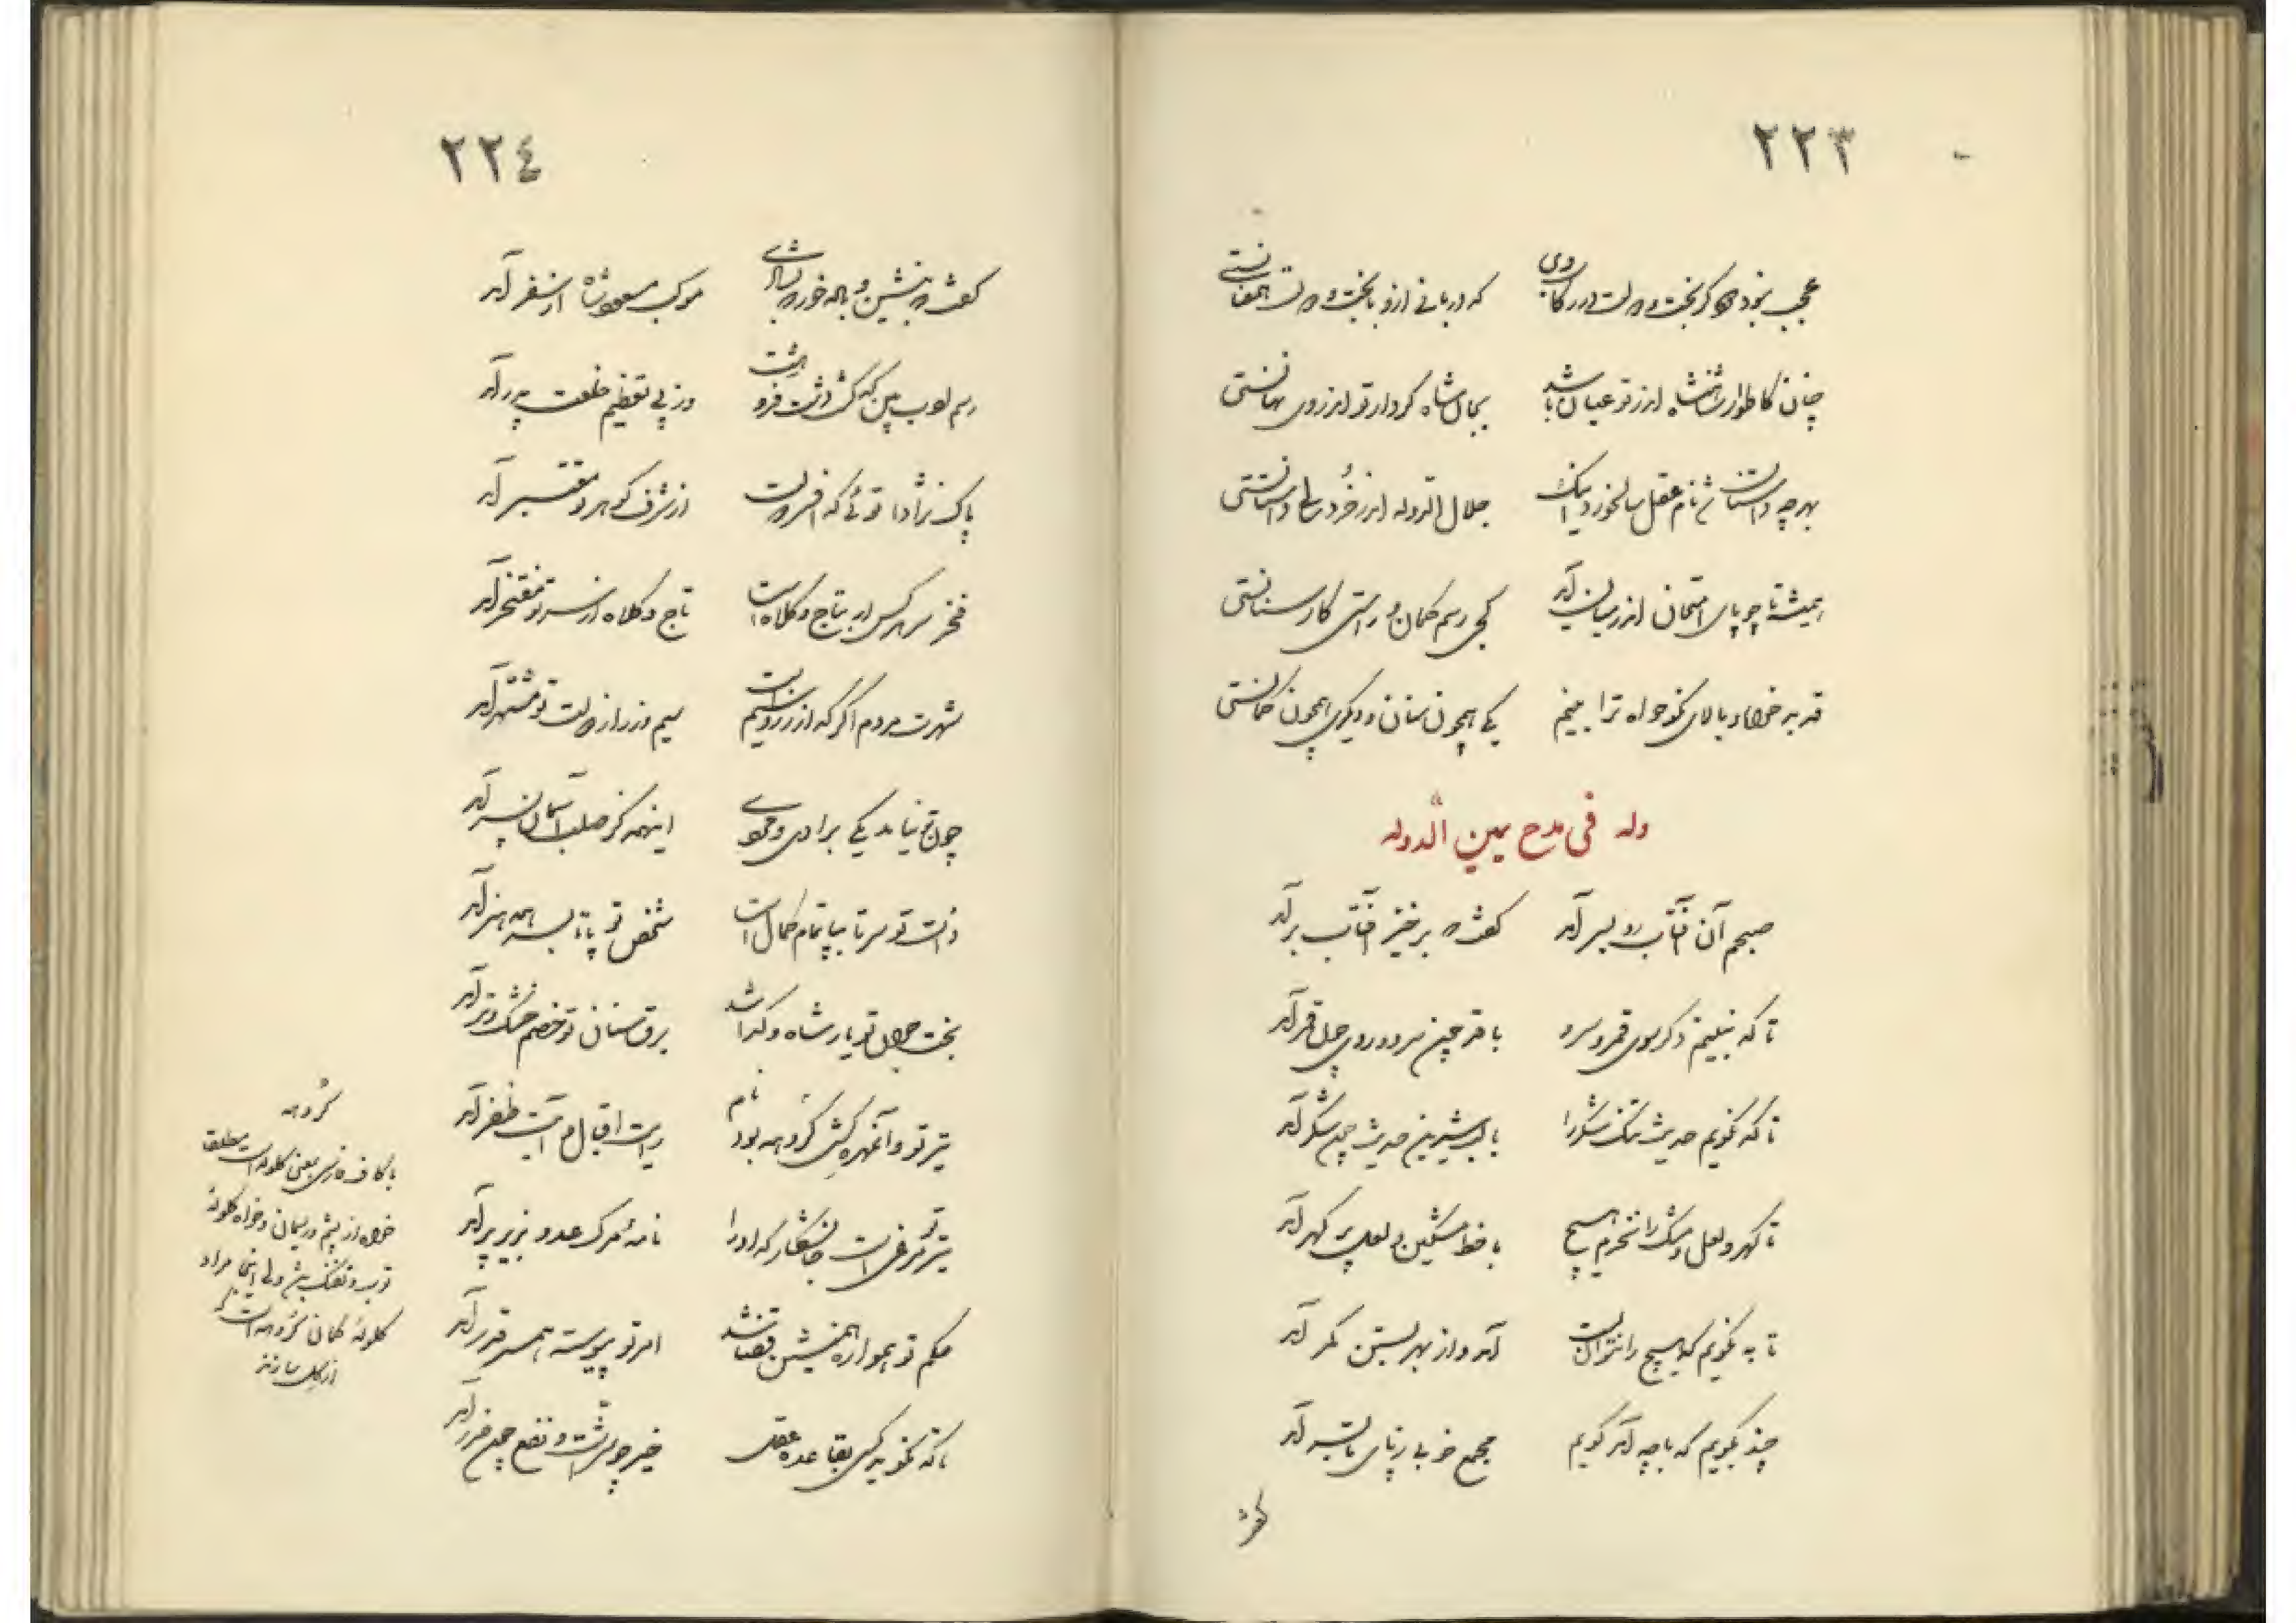 ۲۲۳
عجب نبود گر بخت و دولت در رکاب وی که دربانی ازو با بخت و دولت همعنانستی
چنان کاطوار شاهنشاه اندر تو عیان باشد بمال شاه کردار تو اندر وی نهانستی
بهرچه داستانش نام عقل سالخورد اینک جلال الدوله اندر خردسالی داستانستی
همیشه تا چو پای امتحان اندر میان آید کجی رسم کمان و راستی کار سنانستی
قد بدخواه و بالای نکوخواه ترا بینم یکی همچون سنان و دیگری همچون کمانستی
وله فی مدح یمین الدوله
صبحم آن آفتاب رو بسر آمد گفت که برخیز آفتاب برآمد
تا که نبینم دگر بسوی قمر و سرو با قد چون سرو و روی چون قمر آمد
تا که نگویم حدیث تنگ شکر را با لب شیرین حدیث چون شکر آمد
تا گهر و لعل و مشک را نخرم هیچ با خط مشکین و لعل پر گهر آمد
تا به نگویم که هیچ را نتوان بست آمد و از بهر بستن کمر آمد
چند بگویم که با چه آمد گویم مجمع خوبی ز پای تا بسر آمد
گفت
۲۲٤
گفت که بنشین و باده خور که بشادی موکب مسعود شاه از سفر آمد
رسم ادب بین که کش داشت فرو هشت وز پی تعظیم خلعت پدر آمد
پاک نژادا توئی که افسر دولت از شرف گوهر تو مفتخر آمد
فخر سر هر کس ار بتاج و کلاه است تاج و کلاه از سر تو مفتخر آمد
شهرت مردم اگر که از زر و سیم است سیم و زر از دولت تو مشتهر آمد
چون تو نیامد یکی برادی و مردی اینهمه کز صلب آسمان پسر آمد
ذات تو سر تا بپا تمام کمال است شخص تو پا تا بسر همه هنر آمد
بخت جوان تو یار شاه و گدا شد برق سنان تو خصم خشک و تر آمد
تیر تو و آن مهره کش گروهه بود نام رایت اقبال و آیت ظفر آمد
تیر تو مرغی است جانشکار که او را نامهٔ مرگ عدو بزیر پر آمد
حکم تو همواره همنشین قضا شد امر تو پیوسته همسر قدر آمد
تا که نگوید کسی بقاعده عقل خیر چو شر است و نفع چون ضرر آمد
گروهه
با کاف فارسی بمعنی گلوله است مطلق
خواه از پشم و ریسمان و خواه گلوله
توپ و تفنگ باشد ولی اینجا مراد
گلولهٔ کمان گروهه است که
از گل سازند